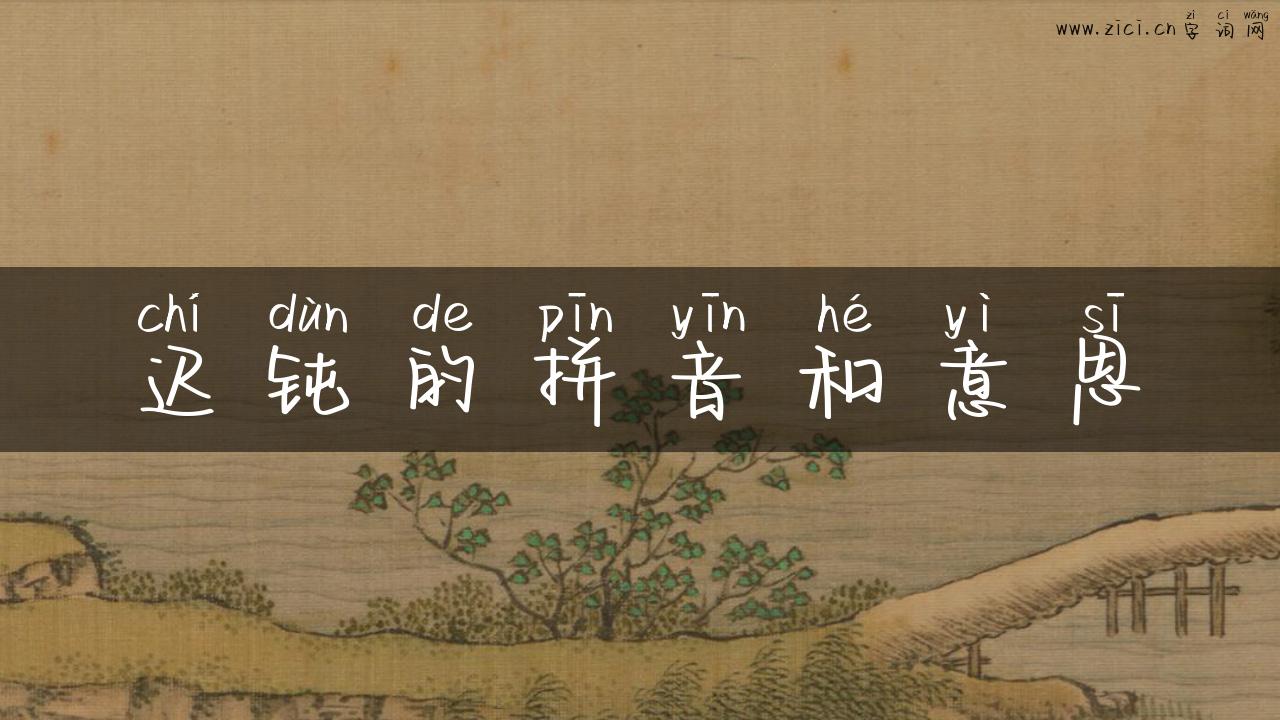 zì cí wǎng
www.zici.cn 字词网
chí dùn de pīn yīn hé yì sī
迟钝的拼音和意思